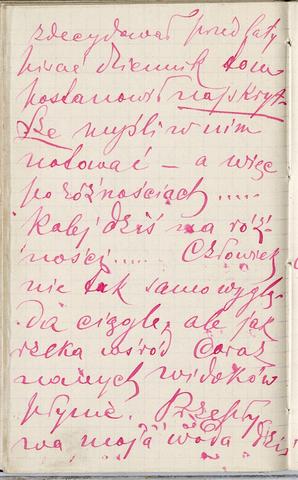 zdecydował przed laty
pisać dziennik tom
postanowił najskryt-
sze myśli w nim
notować – a więc
po różnościach .....
Kolej dziś na róż-
ności ..... Człowiek
nie tak samo wyglą-
da ciągle, ale jak
rzeka wśród coraz
nowych widoków
płynie. Przepły-
wa moja woda dziś